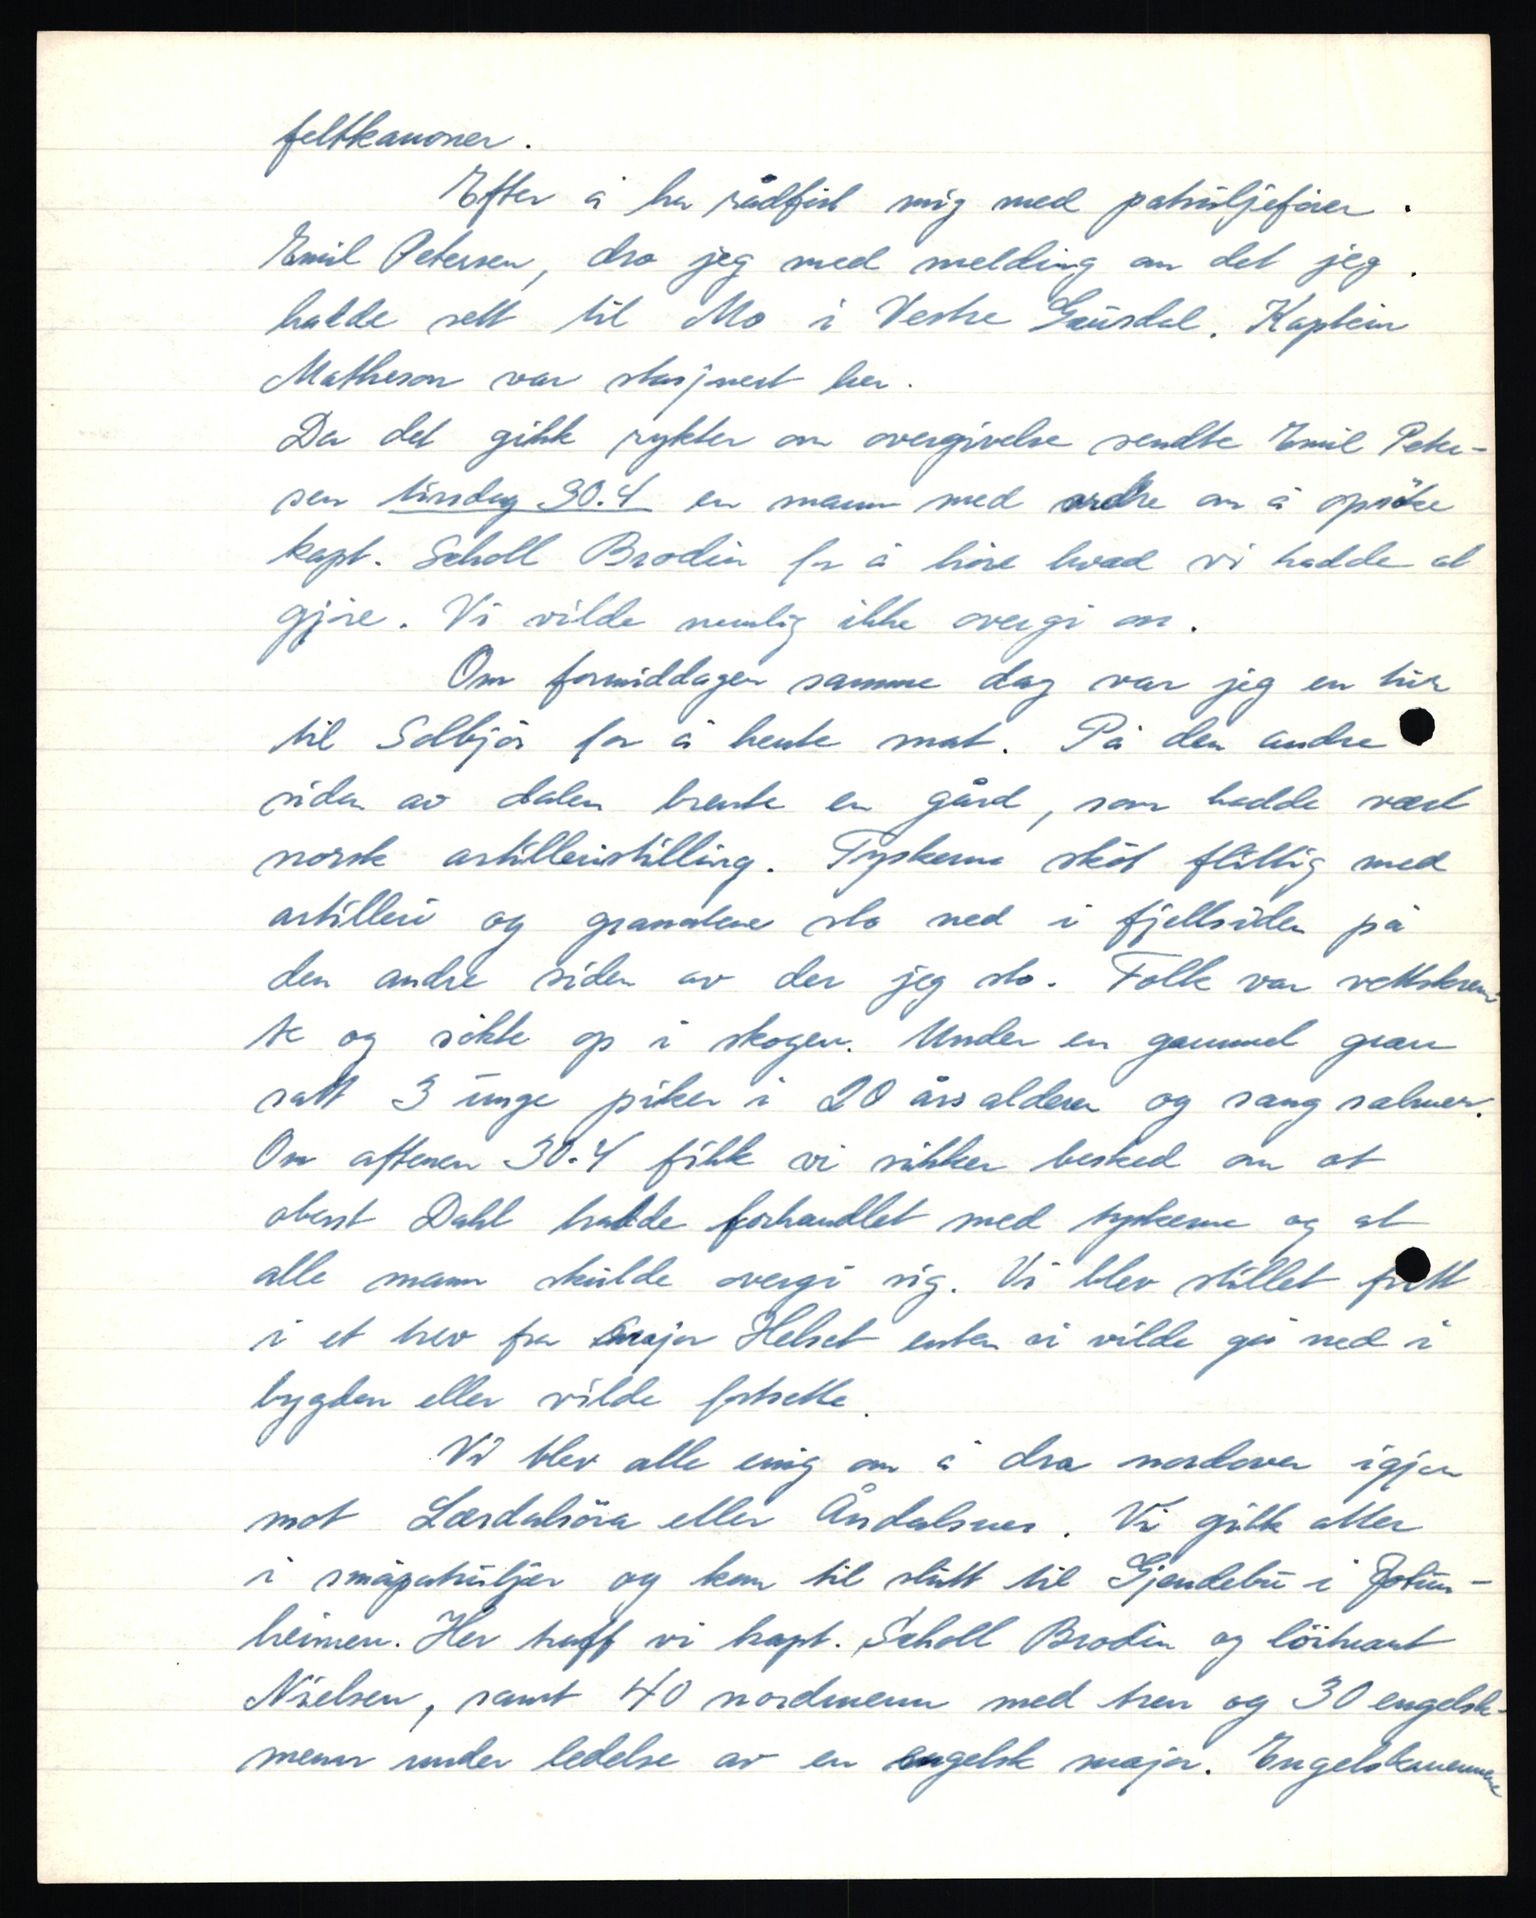 feltkanoner.
Efter å ha rådført mig med patruljefører
Emil Petersen, dro jeg med melding om det jeg
hadde sett til Mo i Vestre Gausdal. Kaptein
Matheson var stasjonert her.
Da det gikk rykter om overgivelse sendte Emil Peter-
sen tirsdag 30.4 en mann med ordre om å opsøke
kapt. Scholl Brodin for å høre hvad vi hadde at
gjøre. Vi vilde nemlig ikke overgi oss.
Om formiddagen samme dag var jeg en tur
til Solbjør for å hente mat. På den andre
siden av dalen brente en gård, som hadde vært
norsk artilleristilling. Tyskerne skøt flittig med
artilleri og granatene slo ned i fjellsiden på
den andre siden av der jeg sto. Folk var vettskrem-
te og søkte op i skogen. Under en gammel gran
satt 3 unge piker i 20 års alderen og sang salmer.
Om aftenen 30.4 fikk vi sikker besked om at
oberst Dahl hadde forhandlet med tyskerne og at
alle mann skulde overgi sig. Vi blev stillet fritt
i et brev fra major Helset enten vi vilde gå ned i
bygden eller vilde fortsette.
Vi blev alle enig om å dra nordover igjen
mot Lærdalsöra eller Åndalsnes. Vi gikk atter
i småpatruljer og kom til slutt til Gjendebu i Jotun-
heimen. Her traff vi kapt. Scholl Brodin og löitnant
Nielsen, samt 40 nordmenn med tren og 30 engelsk-
menn under ledelse av en engelsk major. Engelskmennene